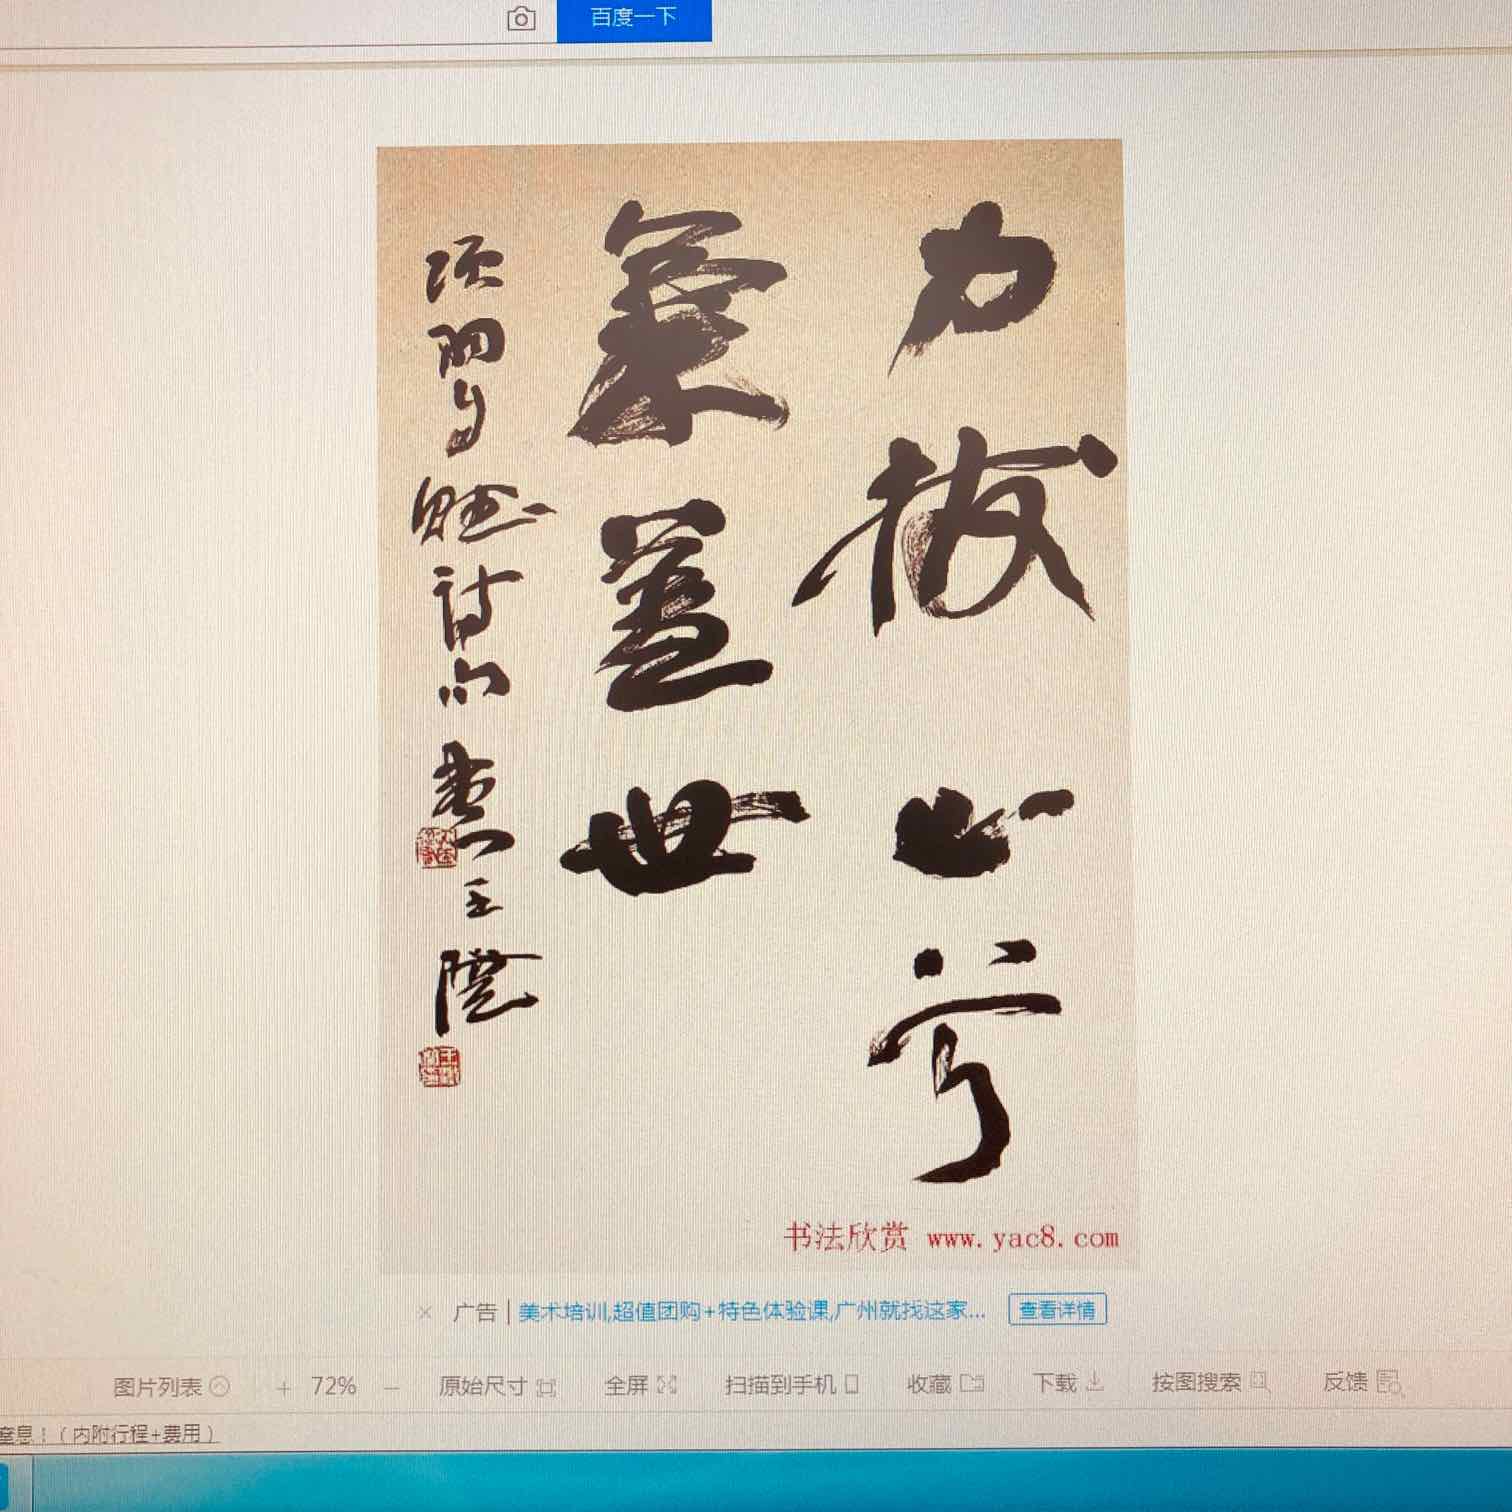 百度一下
力拔山兮
氣蓋世
项羽自
赋诗句
王
书法欣赏 www.yac8.com
广告 | 美术培训,超值团购+特色体验课,广州就找这家... 查看详情
图片列表 + 72% - 原始尺寸 全屏 扫描到手机 收藏 下载 按图搜索 反馈
窒息！（内附行程+费用）